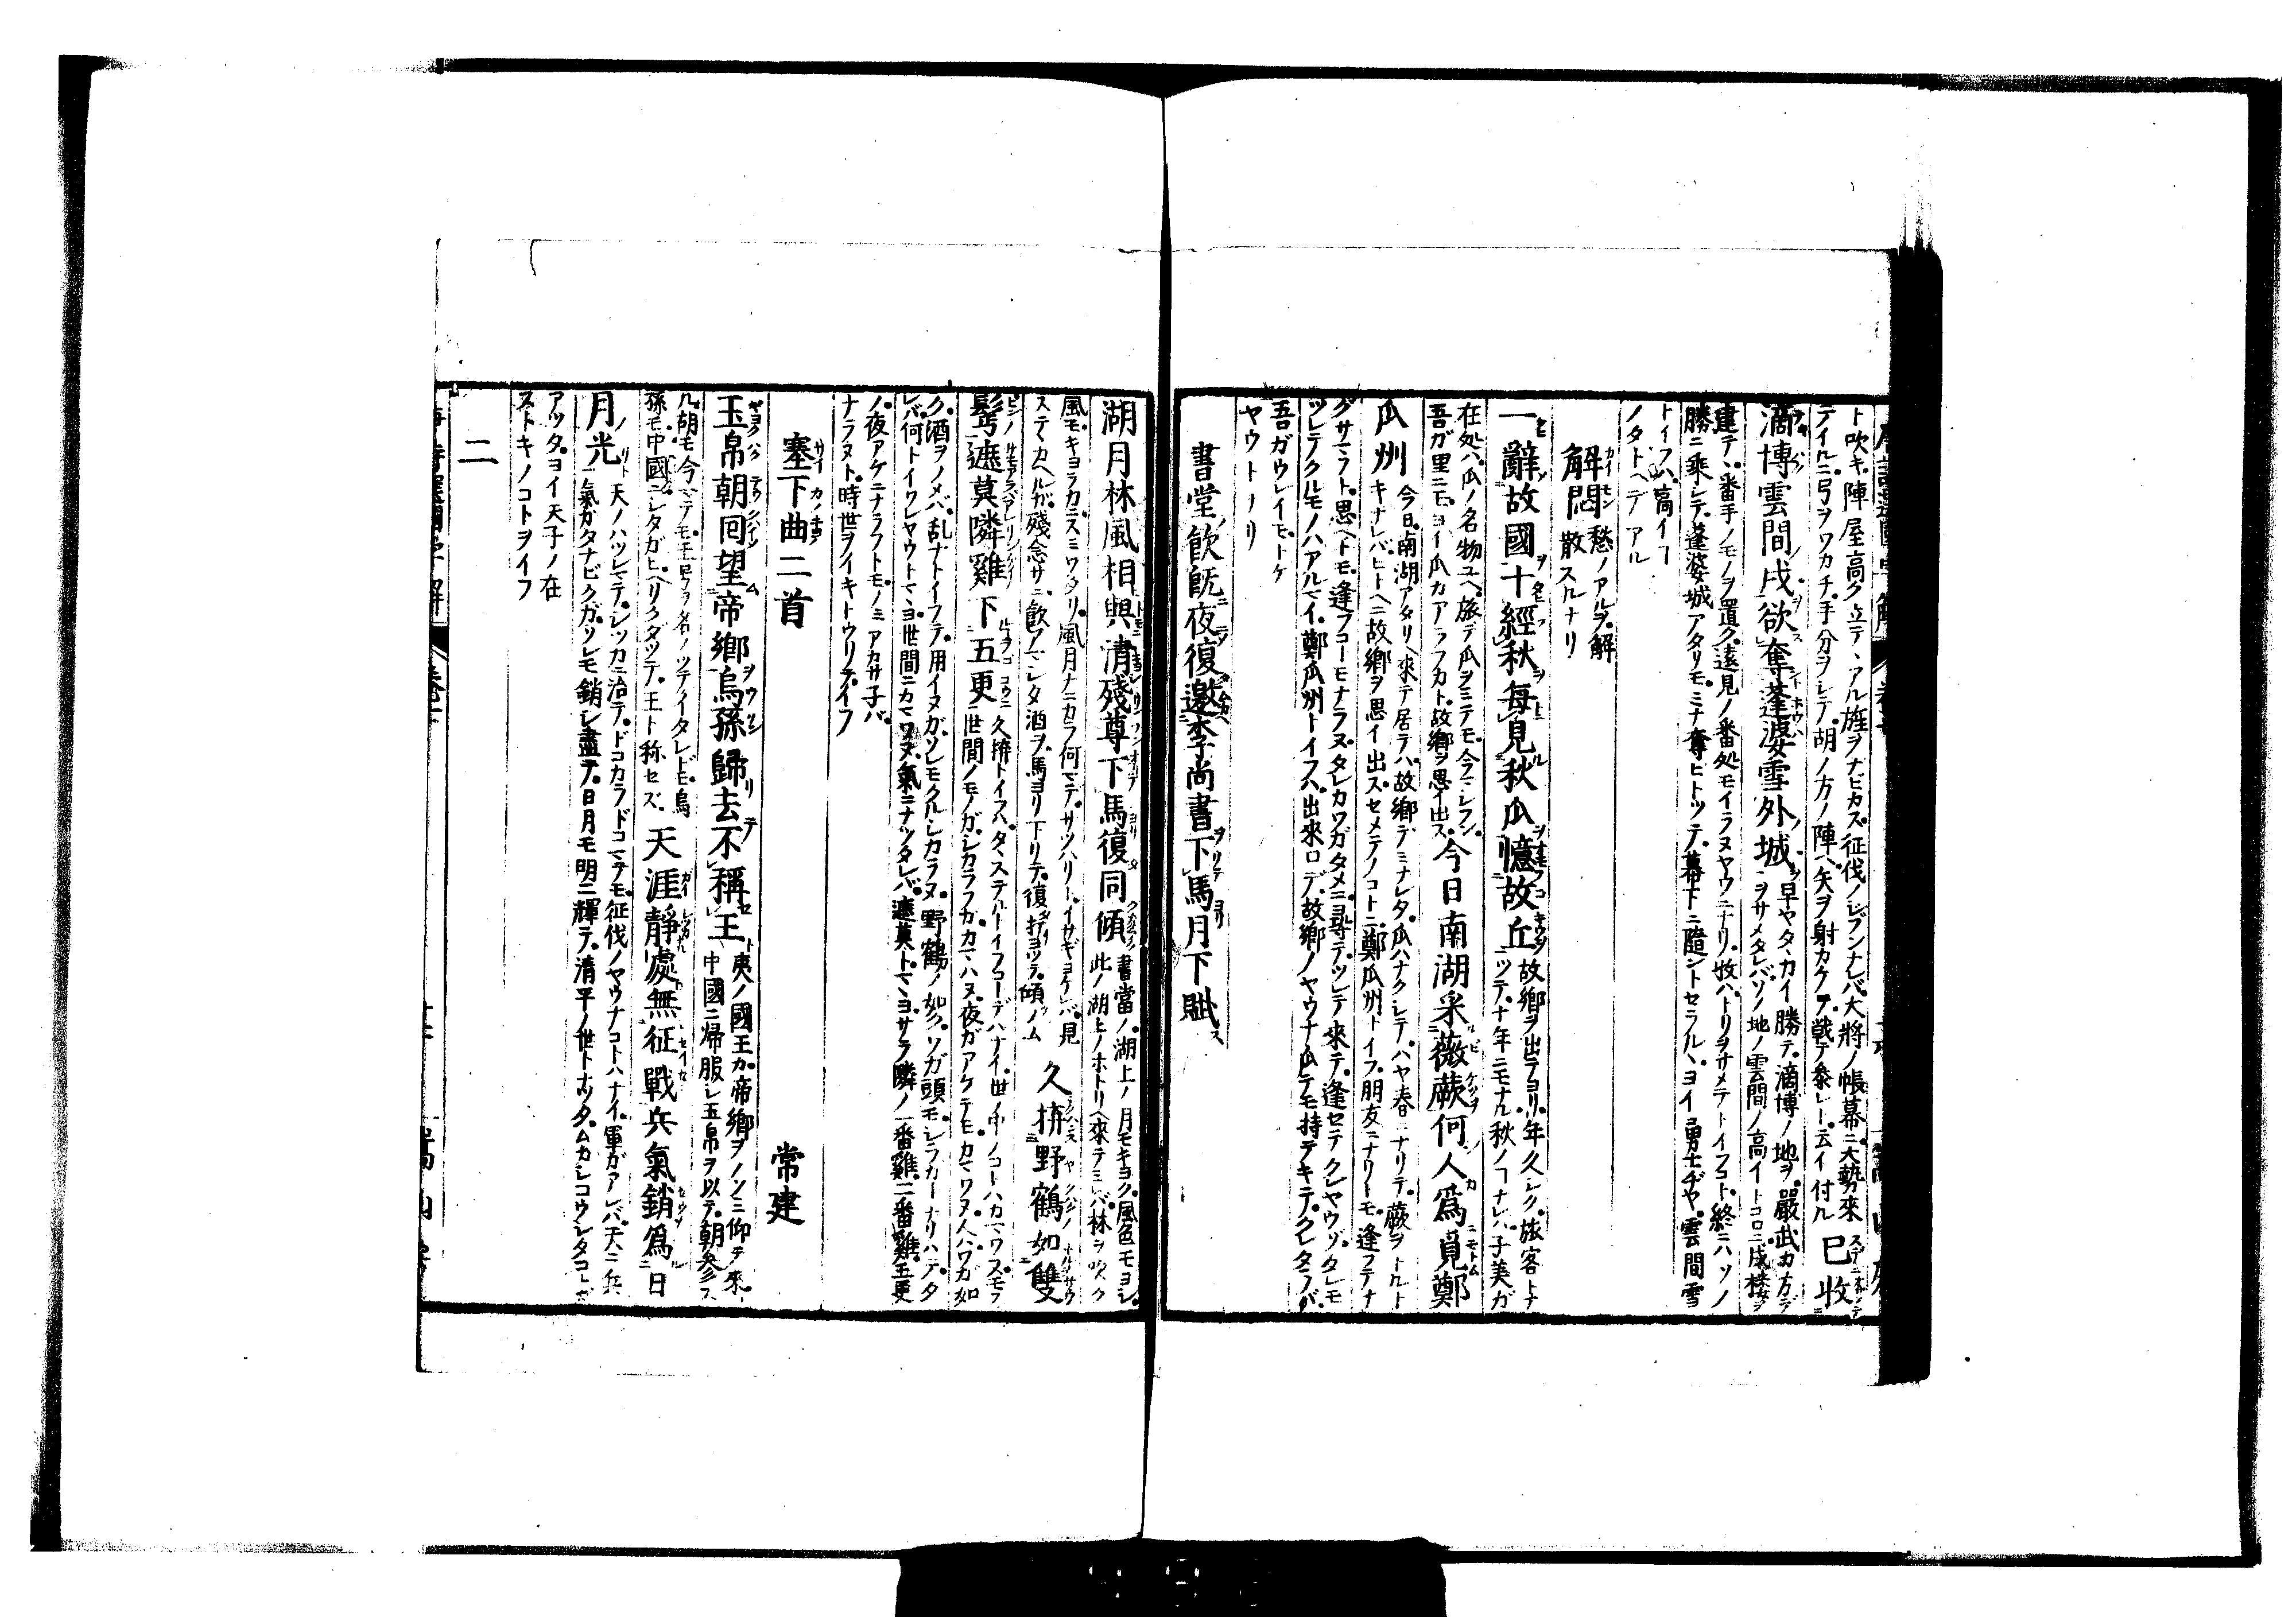 ト吹キ陣屋高ク立テ、アル旌ヲナビカス征伐ノレブンナレバ大將ノ帳幕ニ大勢來
テイルニ弓ヲワカチ手分ヲレテ胡ノ方ノ陣ヘ矢ヲ射カケテ戰テ參レト云イ付ル
已收
滴博雲間戍欲奪蓬婆雪外城
早ヤタヽカイ勝テ滴博ノ地ヲ嚴武カ方デ
ヲサメタレバソノ地ノ雲間ノ高イトコロニ戍樓ヲ
建テ、番手ノモノヲ置ク遠見ノ番処モイラヌヤウニナリ收ハトリヲサメテトイフコト終ニハソノ
勝ニ乘レテ蓬婆城アタリモミナ奪ヒトツテ幕下ニ隨ントセラルヽヨイ勇士ヂヤ雲間雪
トイフハ高イ
ノタトヘデアル
解悶
愁ノアルヲ解
散スルナリ
一辭故國十經秋每見秋瓜憶故丘
故鄉ヲ出テヨリ年久レク旅客トナ
ツテ十年ニモナル秋ノコナレバ子美ガ
在処ハ瓜ノ名物ユヘ旅デ瓜ヲミテモ今コレブン
吾ガ里ニモヨイ瓜カアラフカト故鄉ヲ思イ出ス
今日南湖采薇蕨何人爲覓鄭
瓜州
今日南湖アタリヘ來テ居テハ故鄉デミナレタ瓜ハナクレテハヤ春ニナリテ蕨ヲトルト
キナレバヒトヘニ故鄉ヲ思イ出スセメテノコトニ鄭瓜州トイフ朋友ニナリトモ逢フテナ
グサマラト思ヘトモ逢フコーモナラヌタレカワガタメニ尋テツレテ來テ逢セテクレヤウゾタレモ
ツレテクルモノハアルマイ鄭瓜州トイフハ出來口デ故鄉ノヤウナ瓜テモ持テキテクレタラバ
吾ガウレイモトケ
ヤウトナリ
書堂飲旣夜復邀李尚書下馬月下賦
湖月林風相與清殘尊下馬復同傾
書當ノ湖上ノ月モキヨク風色モヨシ
此ノ湖上ノホトリヘ來テミレバ林ヲ吹ク
風モキヨラカニスミワタリ風月ナニカラ何マデサツハリトイサギヨケレバ見
ステヽカヘルガ殘念サニ飲アマレタ酒ヲ馬ヨリ下リテ復打ヨツテ傾ノム
久拚野鶴如雙
鬢遮莫隣雞下五更
久拚トイフハタヽステルトイフコーデハナイ世ノ中ノコトハカマワスモフ
世間ノモノガシカラフカカマハヌ夜ガアケテモカマワヌ人ハワカ如
ク酒ヲノメバ乱ナトイフテ用イヌガソレモクルレカラヌ野鶴ノ如クソガ頭モレラカーナリハテタ
レバ何トイワレヤウトマヽヨ世間ニカマワヌ氣ニナツタレバ遮莫トマヽヨサラ隣ノ一番雞二番雞五更
ノ夜アケニナラフトモノミアカサ子バ
ナラヌト時世ヲイキトウリテイフ
塞下曲二首 常建
玉帛朝回望帝鄉烏孫歸去不稱王
夷ノ國王カ帝鄉ヲノソミ仰ヲ來
中國ニ帰服シ玉帛ヲ以テ朝參ス
ル胡モ今マデモ王号ヲ名ノツテイタレドモ烏
孫モ中國ニシタガヒヘリクダツテ王ト称セズ
天涯靜處無征戰兵氣銷爲日
月光
天ノハツレマデレツカニ治テドコカラドコマデモ征伐ノヤウナコトハナイ軍ガアレバ天ニ兵
氣ガタナビクガソレモ銷シ盡テ日月モ明ニ輝テ清平ノ世トナツタムカレコウレタコレガ
アツタヨイ天子ノ在
ストキノコトヲイフ
二